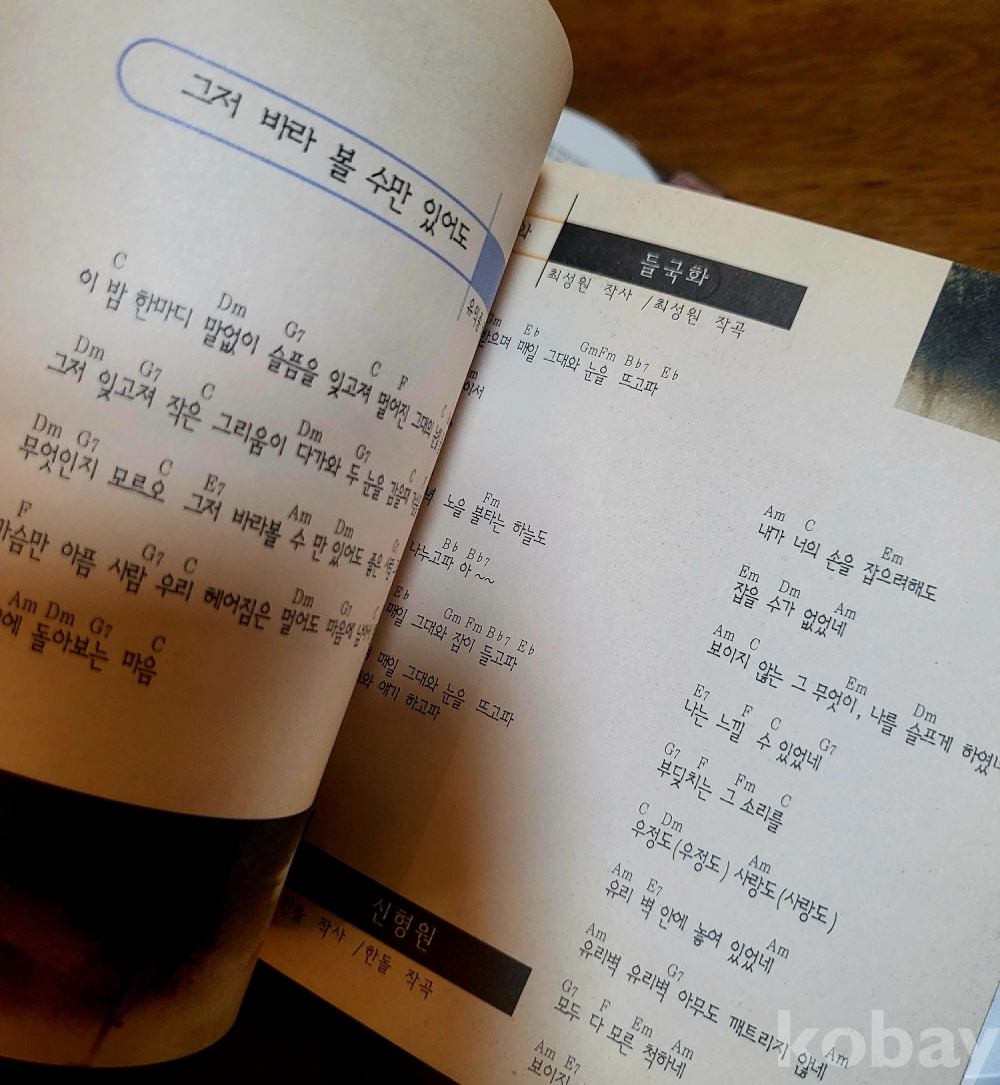 그저 바라 볼 수만 있어도
C Dm G7 C F
이 밤 한마디 말없이 슬픔을 잊고져 멀어진 그대의
Dm G7 C Dm G7 C
그저 잊고져 작은 그리움이 다가와 두 눈을 감을때
Dm G7 C E7 Am Dm
무엇인지 모르오 그저 바라볼 수 만 있어도 좋은
F G7 C Dm G7
아픔 사람 우리 헤어짐은 멀어도 마음에
Am Dm G7 C
에 돌아보는 마음
들국화
최성원 작사 / 최성원 작곡
Gm Eb GmFm Bb7 Eb
받으며 매일 그대와 눈을 뜨고파
Fm
노을 불타는 하늘도
Bb Bb7
나누고파 아~~
Eb Gm Fm Bb7 Eb
매일 그대와 잠이 들고파
매일 그대와 눈을 뜨고파
얘기 하고파
신형원
한돌 작사 / 한돌 작곡
Am C Em
내가 너의 손을 잡으려해도
Em Dm Am
잡을 수가 없었네
Am C Em Dm
보이지 않는 그 무엇이, 나를 슬프게 하였네
E7 F C G7
나는 느낄 수 있었네
G7 F Fm C
부딪치는 그 소리를
C Dm Am
우정도(우정도) 사랑도(사랑도)
Am E7 Am
유리 벽 안에 놓여 있었네
Am G7 Am
유리벽 유리벽 아무도 깨트리지 않네
G7 F Em Am
모두 다 모른 척하네
Am E7
보이지
kobay